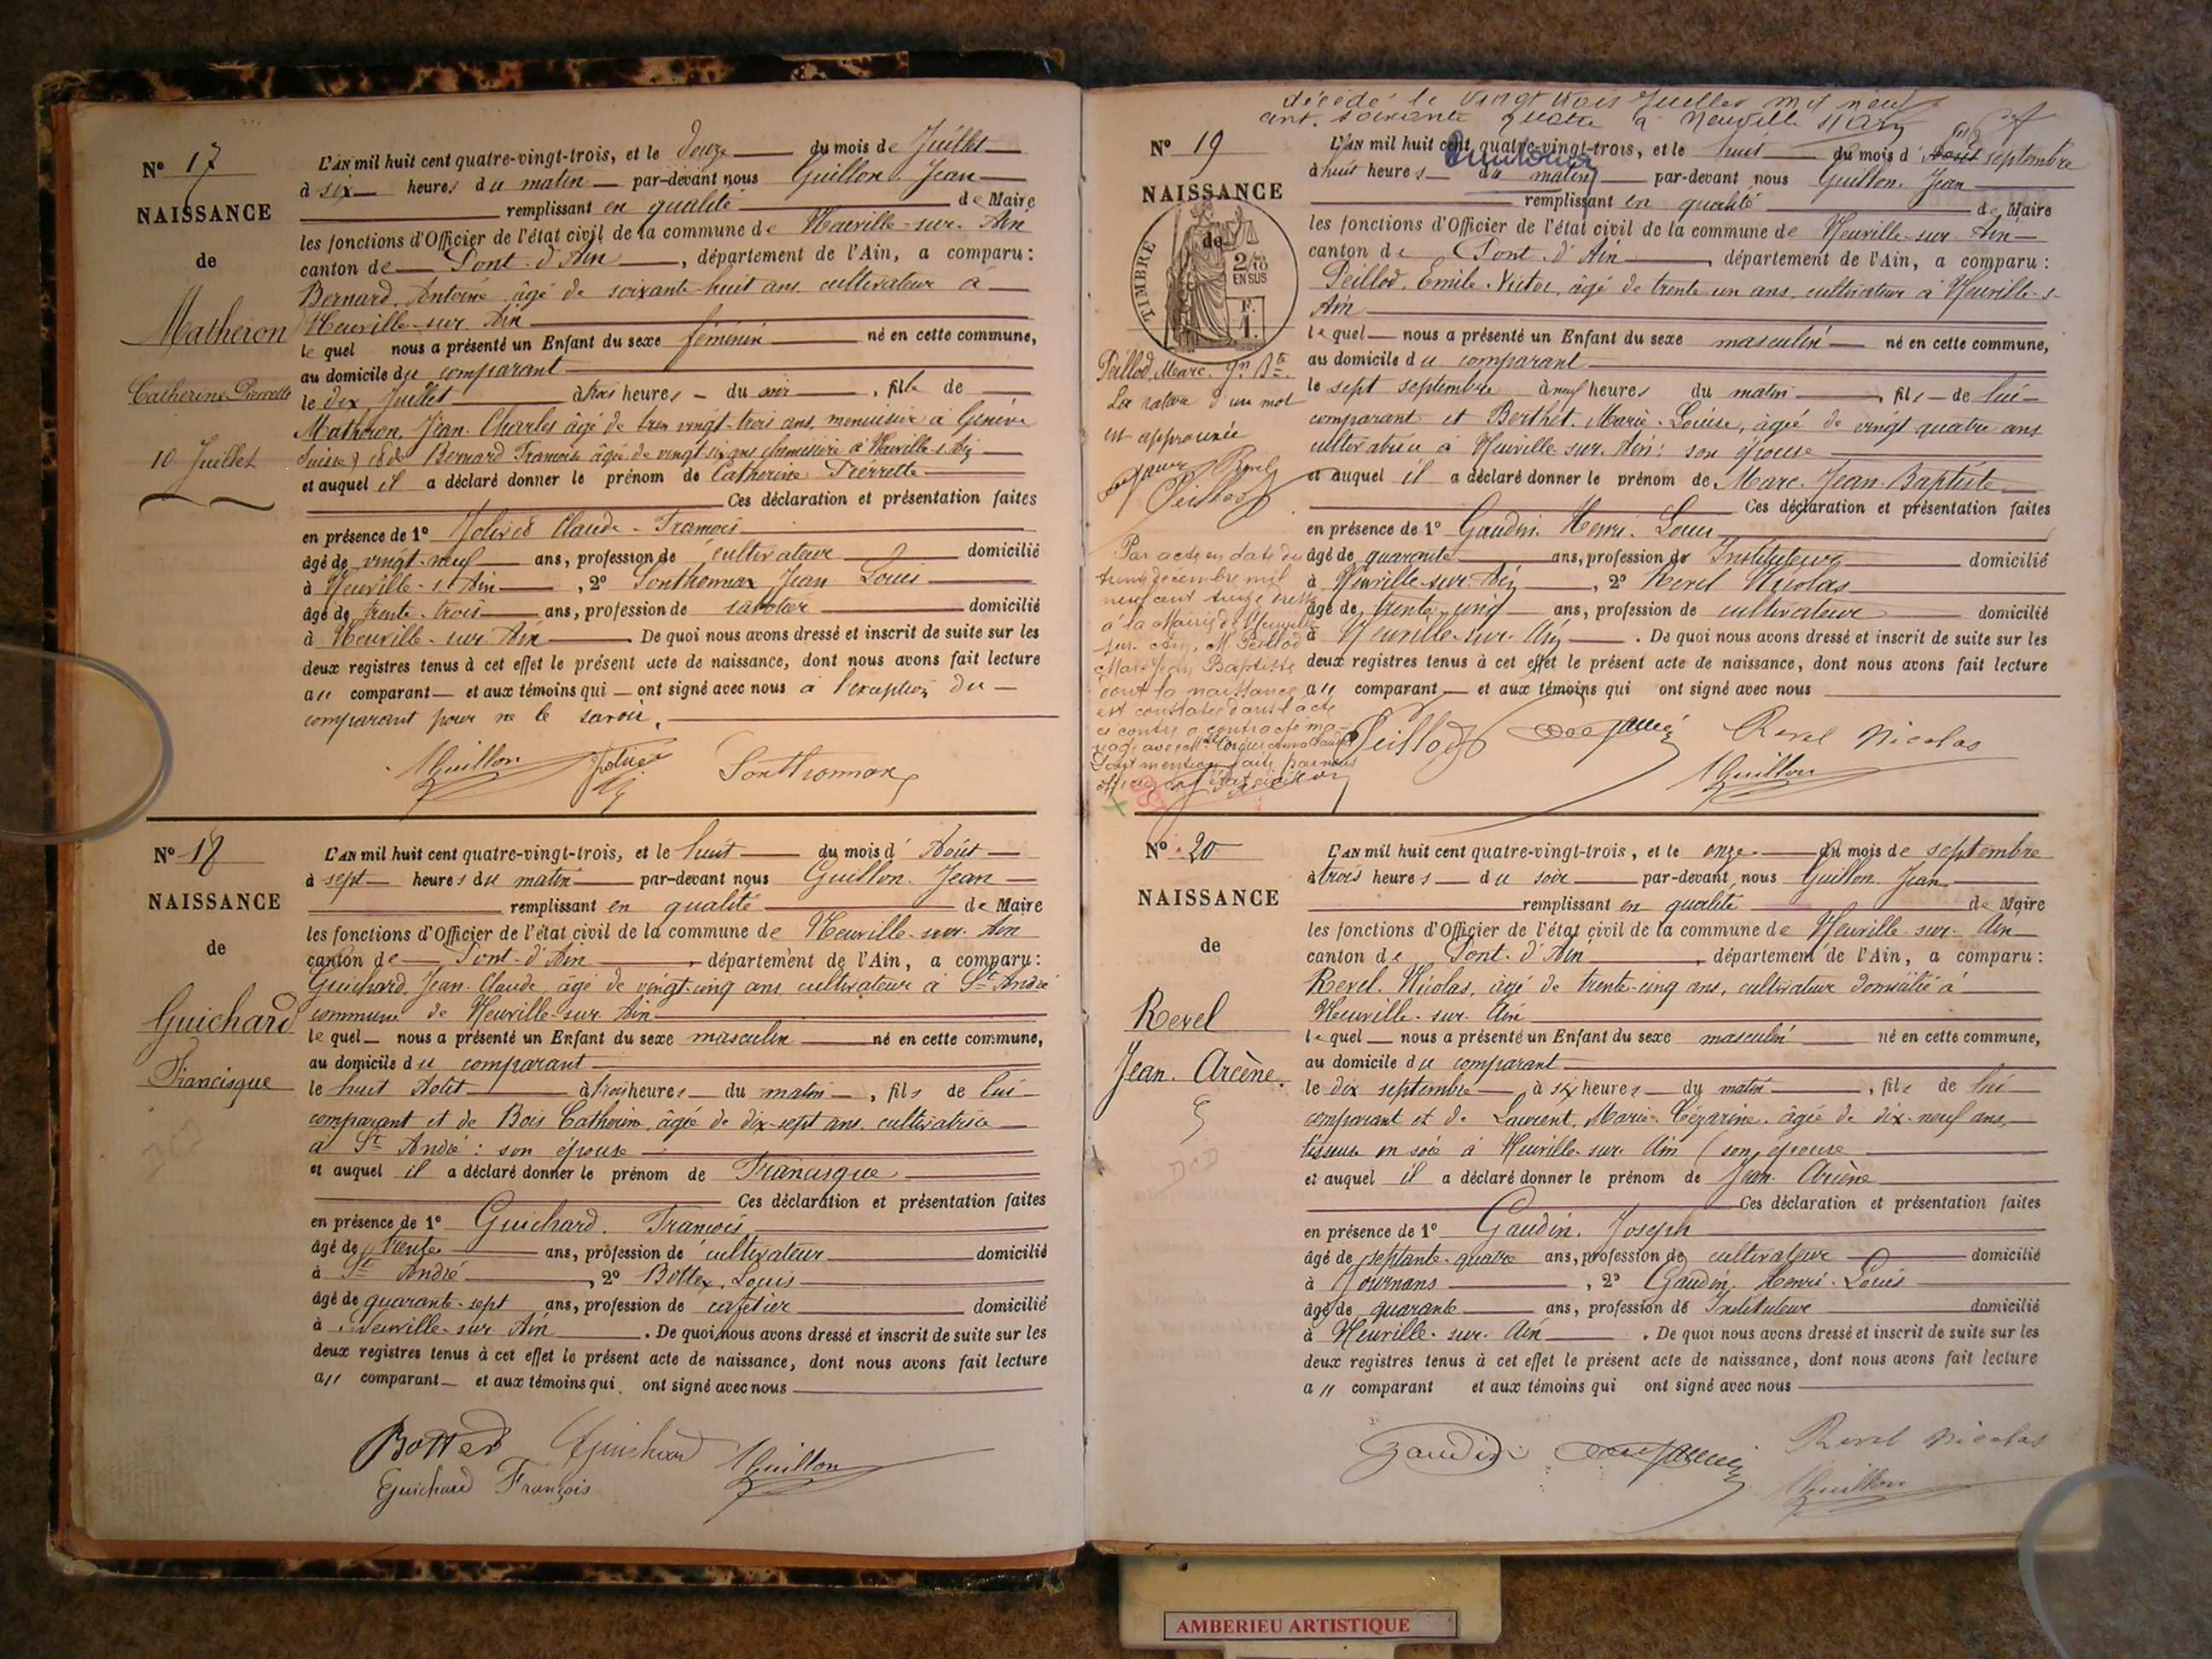 N° 17
NAISSANCE
de
Matheron
Catherine Pierrette
10 Juillet
L'AN mil huit cent quatre-vingt-trois, et le douze du mois de Juillet
à six heures du matin par-devant nous Guillon Jean
remplissant en qualité de Maire
les fonctions d'Officier de l'état civil de la commune de Neuville-sur-Ain
canton de Pont-d'Ain, département de l'Ain, a comparu :
Bernard, Antoine âgé de soixante-huit ans cultivateur à
Neuville-sur-Ain
lequel nous a présenté un Enfant du sexe féminin né en cette commune,
au domicile du comparant
le dix Juillet à trois heures du soir, fille de
Matheron, Jean-Charles âgé de vingt-trois ans, menuisier à Genève
(Suisse) et de Bernard Françoise âgée de vingt-six ans à Neuville-s-Ain
et auquel il a déclaré donner le prénom de Catherine Pierrette
Ces déclaration et présentation faites
en présence de 1° Claude-François
âgé de vingt-neuf ans, profession de cultivateur domicilié
à Neuville-s-Ain, 2° Ponthonnax Jean Louis
âgé de trente-trois ans, profession de sabotier domicilié
à Neuville-sur-Ain. De quoi nous avons dressé et inscrit de suite sur les
deux registres tenus à cet effet le présent acte de naissance, dont nous avons fait lecture
au comparant et aux témoins qui ont signé avec nous à l'exception du
comparant pour ne le savoir.
Guillon Ponthonnax
N° 18
NAISSANCE
de
Guichard
Francisque
DCD
L'AN mil huit cent quatre-vingt-trois, et le huit du mois d'Août
à sept heures du matin par-devant nous Guillon. Jean
remplissant en qualité de Maire
les fonctions d'Officier de l'état civil de la commune de Neuville-sur-Ain
canton de Pont-d'Ain, département de l'Ain, a comparu :
Guichard, Jean-Claude, âgé de vingt-cinq ans cultivateur à St André
commune de Neuville-sur-Ain
lequel nous a présenté un Enfant du sexe masculin né en cette commune,
au domicile du comparant
le huit Août à trois heures du matin, fils de lui
comparant et de Bois Catherine, âgée de dix-sept ans, cultivatrice
à St André : son épouse
et auquel il a déclaré donner le prénom de Francisque
Ces déclaration et présentation faites
en présence de 1° Guichard. François
âgé de trente ans, profession de cultivateur domicilié
à St André, 2° Bottex, Louis
âgé de quarante-sept ans, profession de cafetier domicilié
à Neuville-sur-Ain. De quoi nous avons dressé et inscrit de suite sur les
deux registres tenus à cet effet le présent acte de naissance, dont nous avons fait lecture
au comparant et aux témoins qui ont signé avec nous
Bottex Guichard Guillon
Guichard François
décédé le vingt trois Juillet mil neuf
cent soixante quatre à Neuville s/Ain
N° 19
NAISSANCE
de
TIMBRE
2/10
EN SUS
F.
1.
Peillod, Marc. Jn Bte
La rature d'un mot
est approuvée
Revel
Peillod
Par acte en date du
trente décembre mil
neuf cent treize dressé
à la Mairie de Neuville
sur-Ain, M Peillod
Marc Jean Baptiste
dont la naissance
est constatée dans l'acte
ci contre a contracté ma-
riage avec
Dont mention faite par nous
L'AN mil huit cent quatre-vingt-trois, et le huit du mois d'août septembre
à huit heures du matin par-devant nous Guillon. Jean
remplissant en qualité de Maire
les fonctions d'Officier de l'état civil de la commune de Neuville-sur-Ain
canton de Pont-d'Ain, département de l'Ain, a comparu :
Peillod, Emile-Victor, âgé de trente un ans, cultivateur à Neuville-s-
Ain
lequel nous a présenté un Enfant du sexe masculin né en cette commune,
au domicile du comparant
le sept septembre à neuf heures du matin, fils de lui
comparant et Berthet. Marie-Louise, âgée de vingt quatre ans
cultivatrice à Neuville-sur-Ain : son épouse
et auquel il a déclaré donner le prénom de Marc. Jean-Baptiste
Ces déclaration et présentation faites
en présence de 1° Gaudin. Henri-Louis
âgé de quarante ans, profession de Instituteur domicilié
à Neuville-sur-Ain, 2° Revel Nicolas
âgé de trente-cinq ans, profession de cultivateur domicilié
à Neuville-sur-Ain. De quoi nous avons dressé et inscrit de suite sur les
deux registres tenus à cet effet le présent acte de naissance, dont nous avons fait lecture
au comparant et aux témoins qui ont signé avec nous
Peillod Revel Nicolas
Guillon
N° 20
NAISSANCE
de
Revel
Jean. Arcène.
DCD
L'AN mil huit cent quatre-vingt-trois, et le onze du mois de septembre
à trois heures du soir par-devant nous Guillon. Jean
remplissant en qualité de Maire
les fonctions d'Officier de l'état civil de la commune de Neuville-sur-Ain
canton de Pont-d'Ain, département de l'Ain, a comparu :
Revel. Nicolas, âgé de trente-cinq ans, cultivateur domicilié à
Neuville-sur-Ain
lequel nous a présenté un Enfant du sexe masculin né en cette commune,
au domicile du comparant
le dix septembre à six heures du matin, fils de lui
comparant et de Laurent, Marie-Cézarine, âgée de dix-neuf ans,
tisseuse en soie à Neuville-sur-Ain (son épouse
et auquel il a déclaré donner le prénom de Jean. Arcène
Ces déclaration et présentation faites
en présence de 1° Gaudin. Joseph
âgé de septante-quatre ans, profession de cultivateur domicilié
à Journans, 2° Gaudin. Henri-Louis
âgé de quarante ans, profession de Instituteur domicilié
à Neuville-sur-Ain. De quoi nous avons dressé et inscrit de suite sur les
deux registres tenus à cet effet le présent acte de naissance, dont nous avons fait lecture
au comparant et aux témoins qui ont signé avec nous
Gaudin Revel Nicolas
Guillon
AMBERIEU ARTISTIQUE